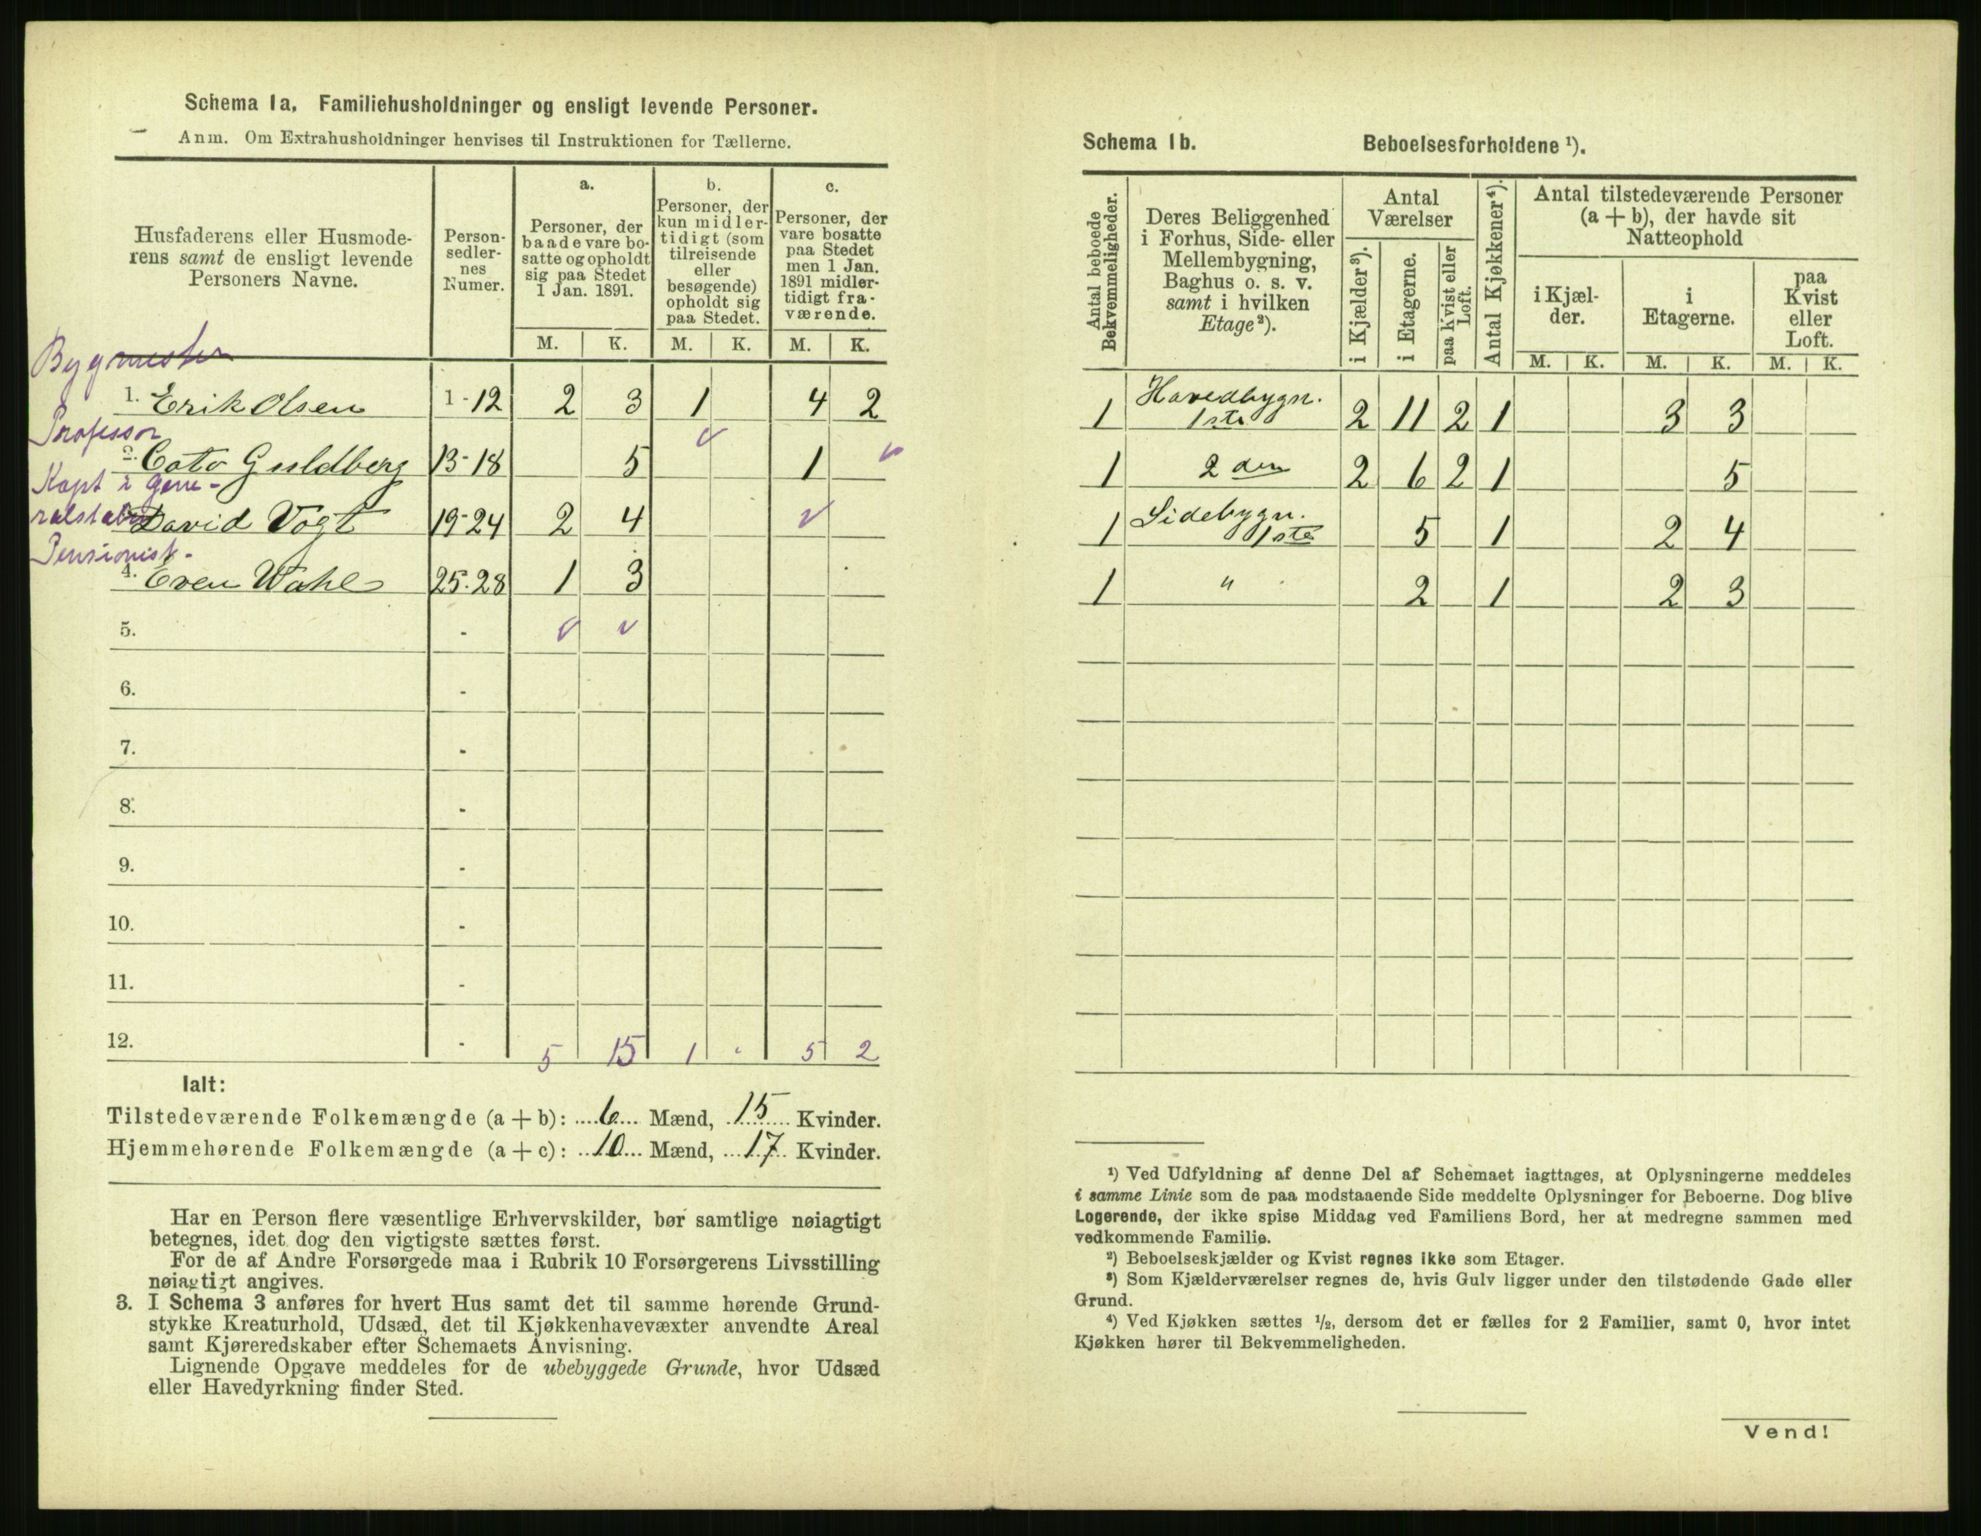 Schema 1a. Familiehusholdninger og ensligt levende Personer.
Anm. Om Extrahusholdninger henvises til Instruktionen for Tællerne.
Husfaderens eller Husmode-
rens samt de ensligt levende
Personers Navne.
Person-
sedler-
nes
Numer.
a.
Personer, der
baade vare bo-
satte og opholdt
sig paa Stedet
1 Jan. 1891.
b.
Personer, der
kun midler-
tidigt (som
tilreisende
eller
besøgende)
opholdt sig
paa Stedet.
c.
Personer, der
vare bosatte
paa Stedet
men 1 Jan.
1891 midler-
tidigt fra-
værende.
M. K. M. K. M. K.
Bygmester
1. Erik Olsen 1-12 2 3 1 4 2
Professor
2. Cato Guldberg 13-18 5 1
Kapt i Gene-
ralstaben
David Vogt 19-24 2 4
Pensionist
4. Even Wahl 25-28 1 3
5. -
6. -
7. -
8. -
9. -
10. -
11. -
12. - 5 15 1 - 5 2
Ialt:
Tilstedeværende Folkemængde (a + b): 6 Mænd, 15 Kvinder.
Hjemmehørende Folkemængde (a + c): 10 Mænd, 17 Kvinder.
Har en Person flere væsentlige Erhvervskilder, bør samtlige nøiagtigt
betegnes, idet dog den vigtigste sættes først.
For de af Andre Forsørgede maa i Rubrik 10 Forsørgerens Livsstilling
nøiagtigt angives.
3. I Schema 3 anføres for hvert Hus samt det til samme hørende Grund-
stykke Kreaturhold, Udsæd, det til Kjøkkenhavevæxter anvendte Areal
samt Kjøreredskaber efter Schemaets Anvisning.
Lignende Opgave meddeles for de ubebyggede Grunde, hvor Udsæd
eller Havedyrkning finder Sted.
Schema 1b. Beboelsesforholdene ¹).
Antal beboede
Bekvemmeligheder.
Deres Beliggenhed
i Forhus, Side- eller
Mellembygning,
Baghus o. s. v.
samt i hvilken
Etage²).
Antal
Værelser
i Kjælder³).
i Etagerne.
paa Kvist eller
Loft.
Antal Kjøkkener⁴).
Antal tilstedeværende Personer
(a + b), der havde sit
Natteophold
i Kjæl-
der.
i
Etagerne.
paa
Kvist
eller
Loft.
M. K. M. K. M. K.
1 Hovedbygn. 1ste 2 11 2 1 3 3
1 2den 2 6 2 1 5
1 Sidebygn. 1ste 5 1 2 4
1 " 2 1 2 3
¹) Ved Udfyldning af denne Del af Schemaet iagttages, at Oplysningerne meddeles
i samme Linie som de paa modstaaende Side meddelte Oplysninger for Beboerne. Dog blive
Logerende, der ikke spise Middag ved Familiens Bord, her at medregne sammen med
vedkommende Familie.
²) Beboelseskjælder og Kvist regnes ikke som Etager.
³) Som Kjælderværelser regnes de, hvis Gulv ligger under den tilstødende Gade eller
Grund.
⁴) Ved Kjøkken sættes ½, dersom det er fælles for 2 Familier, samt 0, hvor intet
Kjøkken hører til Bekvemmeligheden.
Vend!